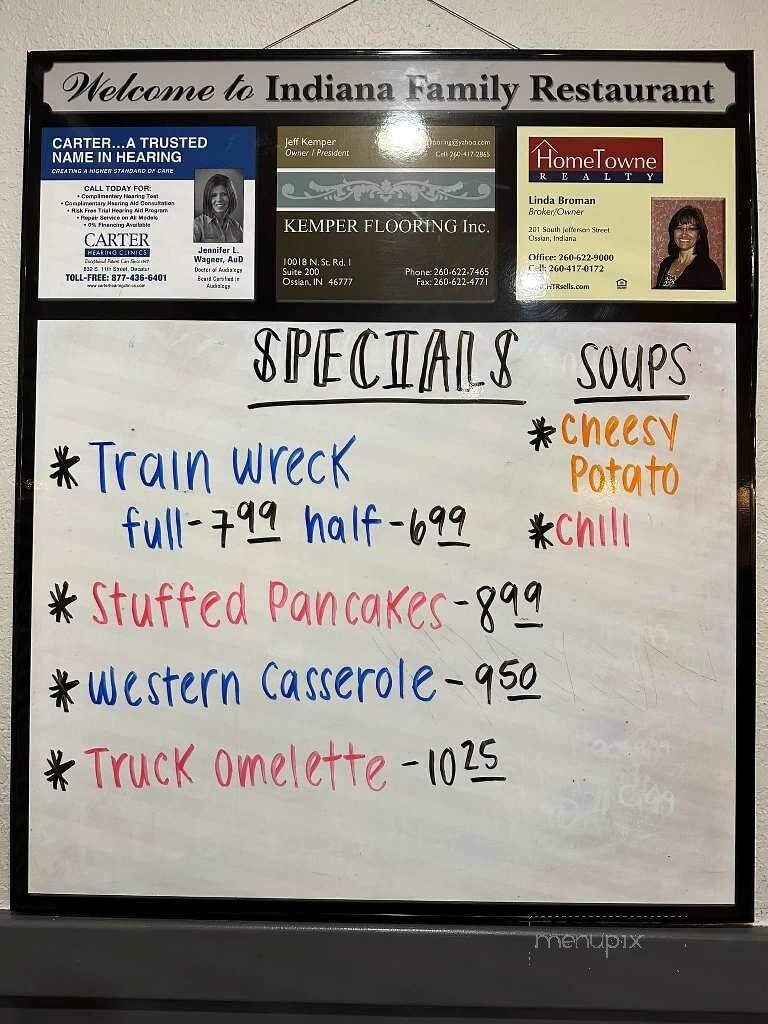 Welcome to Indiana Family Restaurant
CARTER...A TRUSTED
NAME IN HEARING
CREATING A HIGHER STANDARD OF CARE
CALL TODAY FOR:
• Complimentary Hearing Test
• Complimentary Hearing Aid Consultation
• Risk Free Trial Hearing Aid Program
• Repair Service on All Models
• 0% Financing Available
CARTER
HEARING CLINICS
Exceptional Patient Care Since
832 S. 11th Street, Decatur
TOLL-FREE: 877-436-6401
www.carterhearingclinics.com
Jennifer L.
Wagner, AuD
Doctor of Audiology
Board Certified in
Audiology
Jeff Kemper
Owner / President
ooring@yahoo.com
Cell 260-417-2865
KEMPER FLOORING Inc.
10018 N. St. Rd. 1
Suite 200
Ossian, IN 46777
Phone: 260-622-7465
Fax: 260-622-4771
HomeTowne
REALTY
Linda Broman
Broker/Owner
201 South Jefferson Street
Ossian, Indiana
Office: 260-622-9000
Cell: 260-417-0172
HTRsells.com
SPECIALS
* Train Wreck
full - 7 99 half - 6 99
* Stuffed Pancakes - 8 99
* Western Casserole - 9 50
* Truck Omelette - 10 25
SOUPS
* Cheesy
Potato
* Chili
menupix